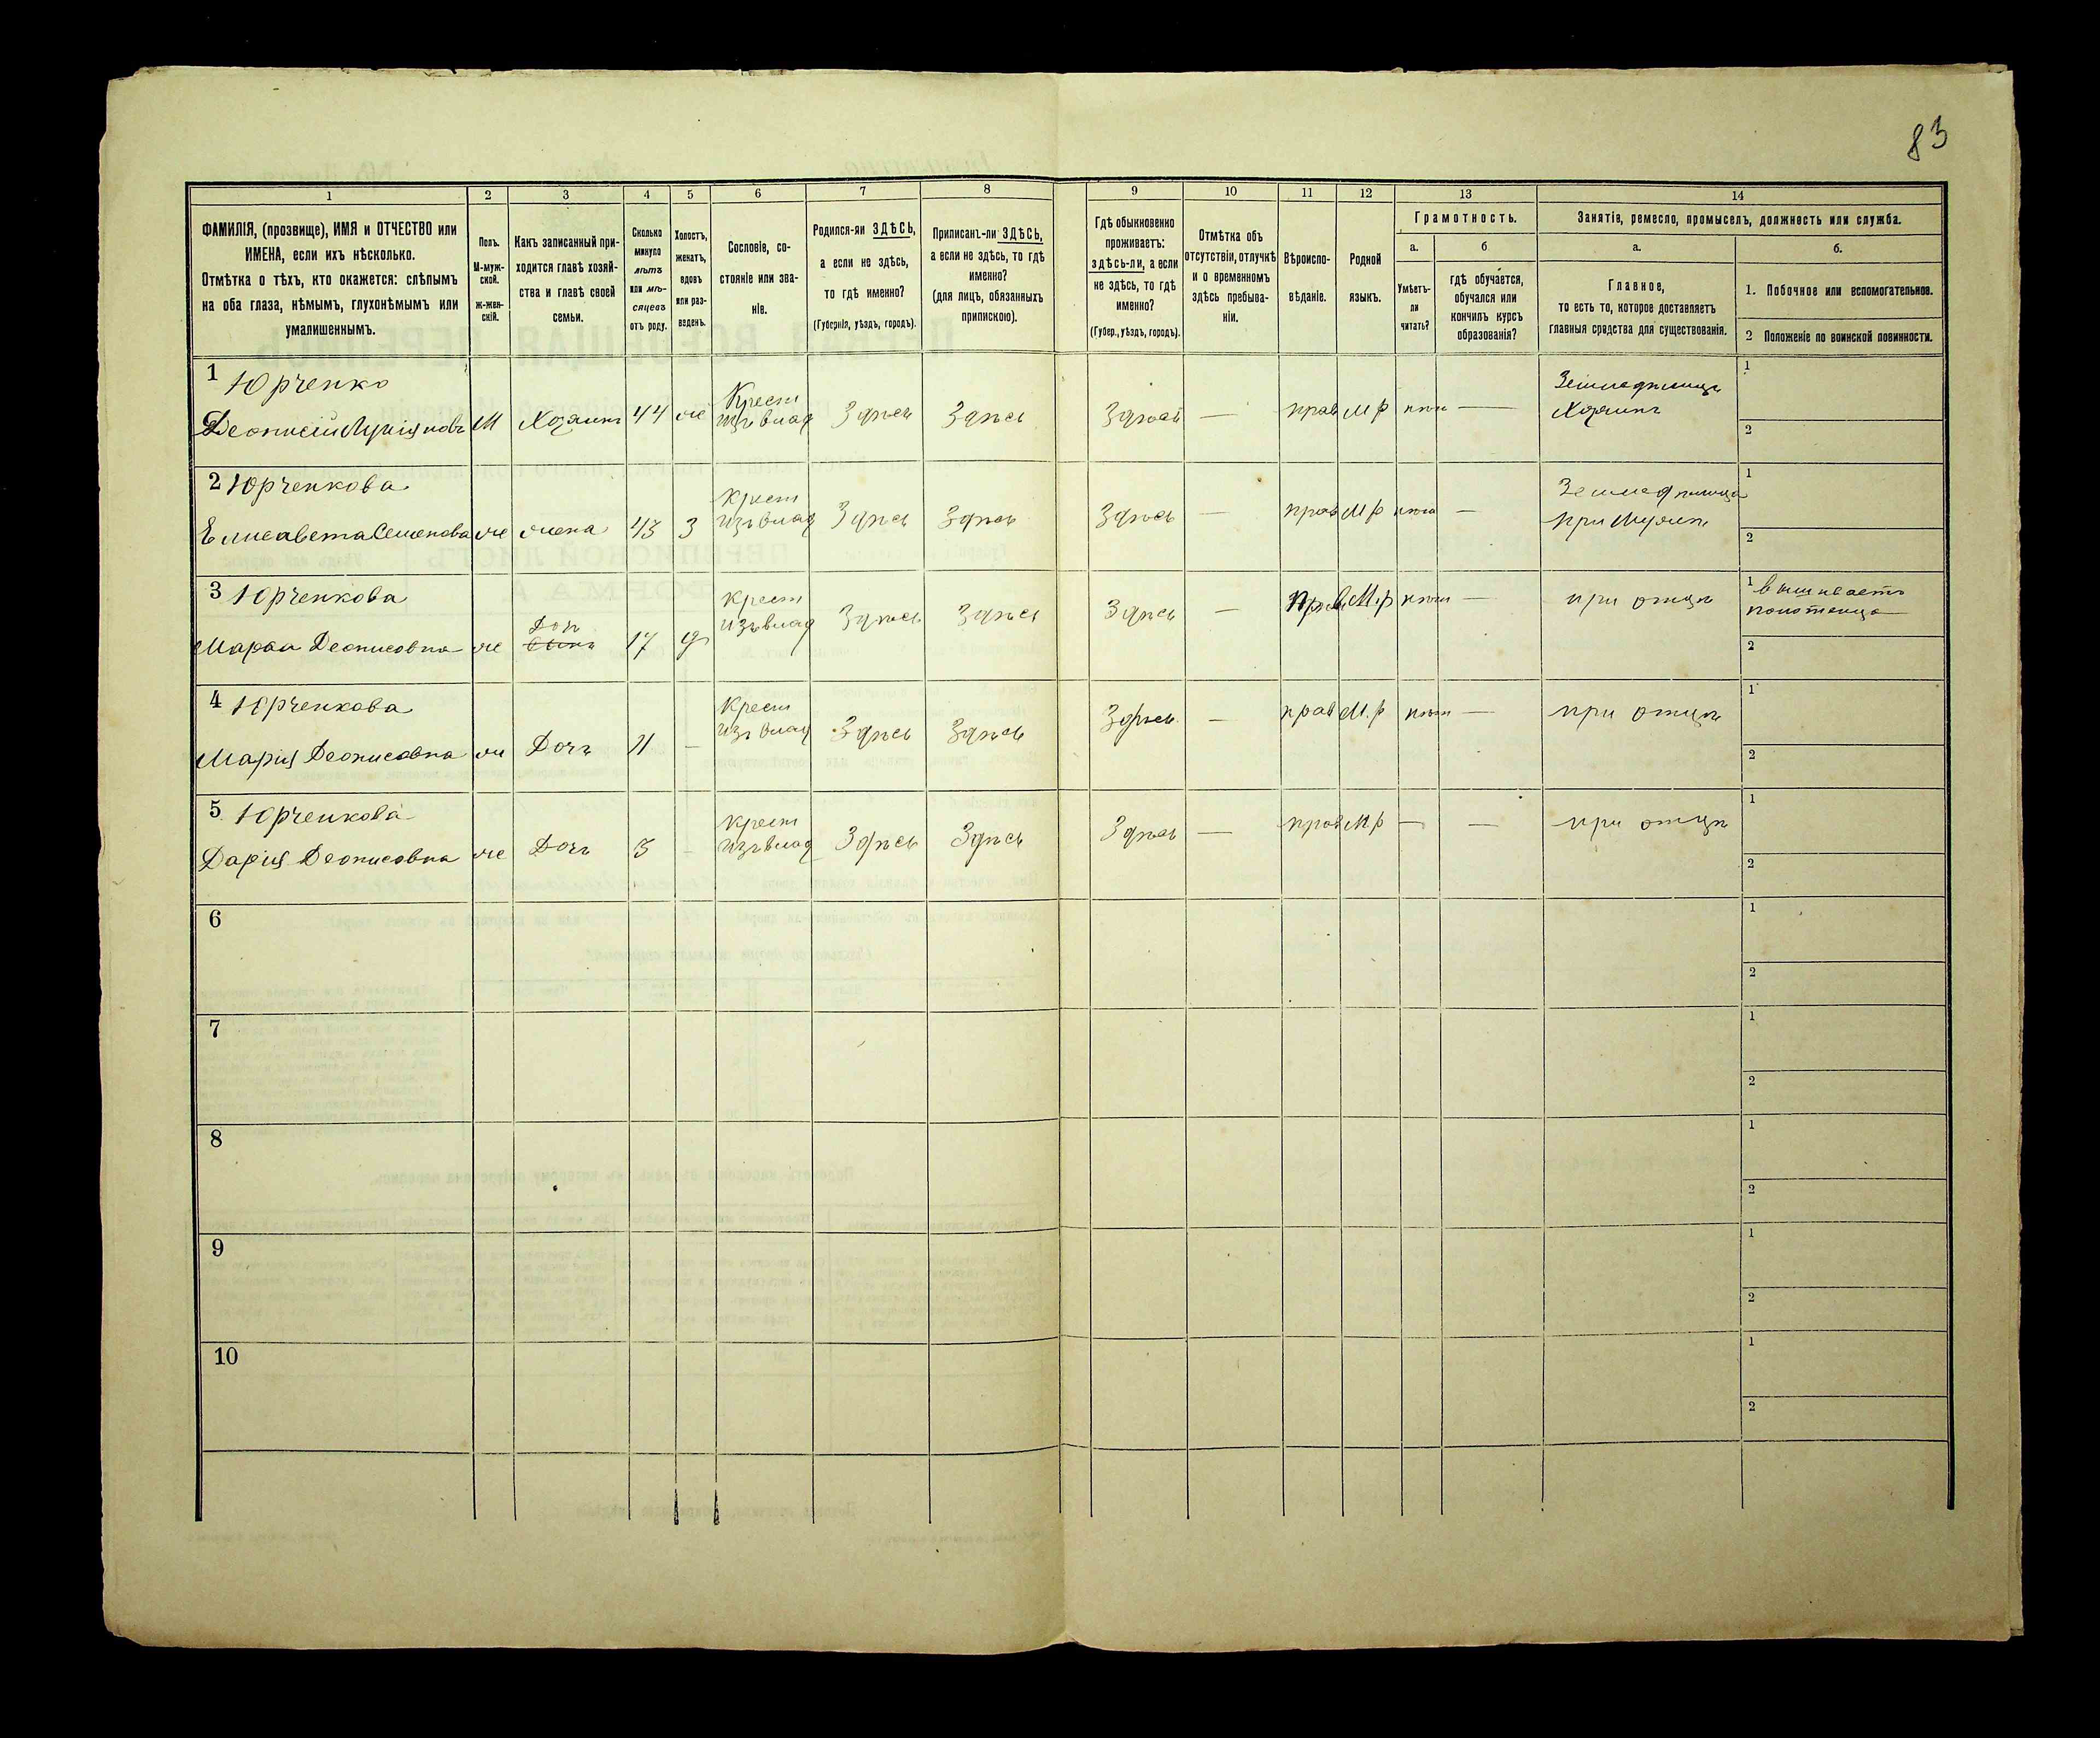 83
1 2 3 4 5 6 7 8 9 10 11 12 13 14
ФАМИЛІЯ, (прозвище), ИМЯ и ОТЧЕСТВО или
ИМЕНА, если ихъ нѣсколько.
Отмѣтка о тѣхъ, кто окажется: слѣпымъ
на оба глаза, нѣмымъ, глухонѣмымъ или
умалишеннымъ.
Полъ.
М-муж-
ской.
ж-жен-
скій.
Какъ записанный при-
ходится главѣ хозяй-
ства и главѣ своей
семьи.
Сколько
минуло
лѣтъ
или мѣ-
сяцевъ
отъ роду.
Холостъ,
женатъ,
вдовъ
или раз-
веденъ.
Сословіе, со-
стояніе или зва-
ніе.
Родился-ли ЗДѢСЬ,
а если не здѣсь,
то гдѣ именно?
(Губернія, уѣздъ, городъ).
Приписанъ-ли ЗДѢСЬ,
а если не здѣсь, то гдѣ
именно?
(для лицъ, обязанныхъ
припискою).
Гдѣ обыкновенно
проживаетъ:
здѣсь-ли, а если
не здѣсь, то гдѣ
именно?
(Губер., уѣздъ, городъ).
Отмѣтка объ
отсутствіи, отлучкѣ
и о временномъ
здѣсь пребыва-
ніи.
Вѣроиспо-
вѣданіе.
Родной
языкъ.
Грамотность.
а. б
Умѣетъ-
ли
читать?
гдѣ обучается,
обучался или
кончилъ курсъ
образованія?
Занятіе, ремесло, промыселъ, должность или служба.
а. б.
Главное,
то есть то, которое доставляетъ
главныя средства для существованія.
1. Побочное или вспомогательное.
2 Положеніе по воинской повинности.
1 Юрченко
Деонисій Лукіяновъ М Хозяинъ 44 же Крест изъ влад Здѣсь Здѣсь Здѣсь — прав М р нѣт — Земледѣлецъ Хозяинъ 1
2
2 Юрченкова
Елисавета Семенова же жена 43 З Крест изъ влад Здѣсь Здѣсь Здѣсь — прав М р нѣт — при Мужѣ 1
2
3 Юрченкова
же Доч Сынъ 17 д Крест изъ влад Здѣсь Здѣсь Здѣсь — Прав М.р нѣт — при отцѣ 1 вышиваетъ полотенца
2
4 Юрченкова
Марія Деонисовна же Дочь 11 — Крест изъ влад Здѣсь Здѣсь Здѣсь — прав М.р нѣт — при отцѣ 1
2
5 Юрченкова
Дарія Деонисовна же Дочь — Крест изъ влад Здѣсь Здѣсь Здѣсь — прав М р — — при отцѣ 1
2
6 1
2
7 1
2
8 1
2
9 1
2
10 1
2